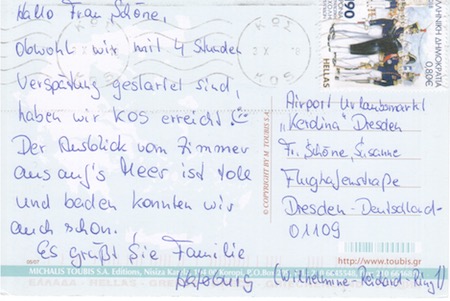 Hallo Frau Schöne,
Obwohl wir mit 4 Stunden
Verspätung gestartet sind,
haben wir KOS erreicht.
Der Ausblick vom Zimmer
aus auf's Meer ist tolle
und baden konnten wir
auch schon.
Es grüßt Sie Familie
ΚΩΣ
ΚΩΣ
90
HELLAS
ΕΛΛΗΝΙΚΗ ΔΗΜΟΚΡΑΤΙΑ
0,80€
© COPYRIGHT BY M. TOUBIS S.A.
Airport Urlaubsmarkt
"Kerdina" Dresden
Fr. Schöne, Susanne
Flughafenstraße
Dresden - Deutschland -
01109
http://www.toubis.gr
MICHALIS TOUBIS S.A. Editions, Nisiza
(Wilhelmine-Reichard-Ring 1)